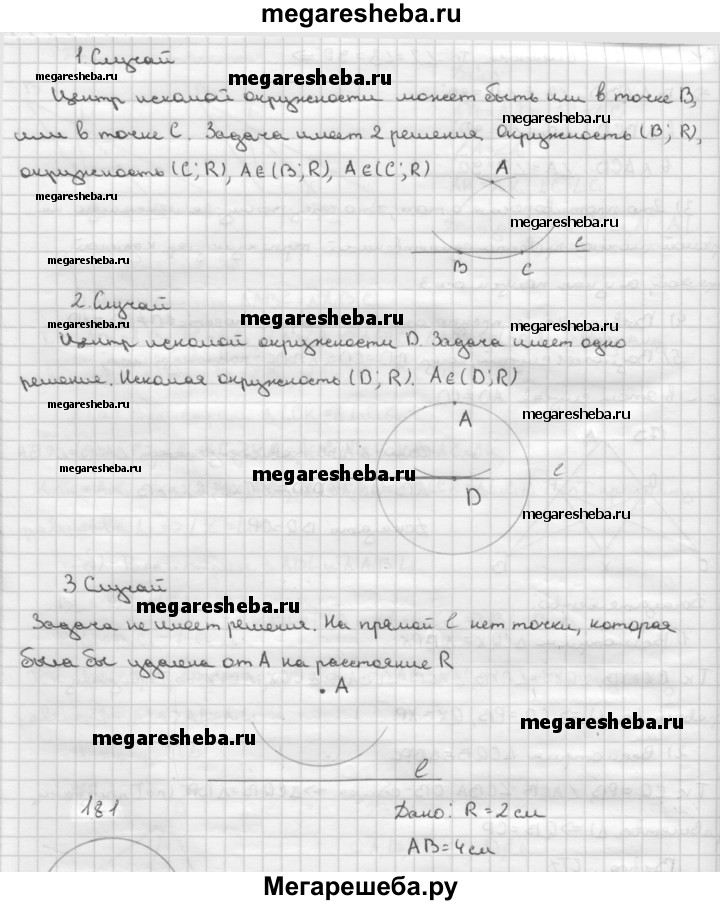 megaresheba.ru
1. Случай
megaresheba.ru
megaresheba.ru
Центр искомой окружности может быть или в точке B,
megaresheba.ru
или в точке C. Задача имеет 2 решения. Окружность (B; R),
окружность (C; R), A∈(B; R), A∈(C; R)
A
megaresheba.ru
megaresheba.ru
megaresheba.ru
ℓ
B
C
2. Случай
megaresheba.ru
megaresheba.ru
megaresheba.ru
Центр искомой окружности D. Задача имеет одно
решение. Искомая окружность (D; R). A∈(D; R)
megaresheba.ru
megaresheba.ru
A
megaresheba.ru
megaresheba.ru
megaresheba.ru
ℓ
D
megaresheba.ru
3 Случай
megaresheba.ru
Задача не имеет решения. На прямой ℓ нет точки, которая
была бы удалена от A на расстояние R
A
megaresheba.ru
megaresheba.ru
ℓ
181
Дано: R = 2 см
AB = 4 см
Мегарешеба.ру